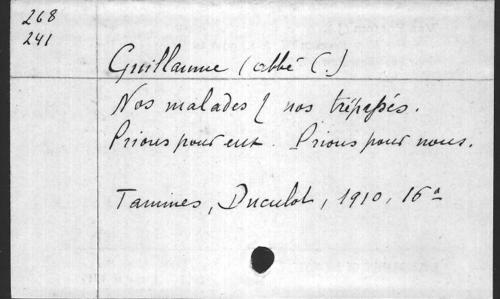 268
241
Guillaume (abbé C.)
Nos malades & nos trépassés.
Prions pour eux. Prions pour nous.
Tamines, Duculot, 1910, 16°